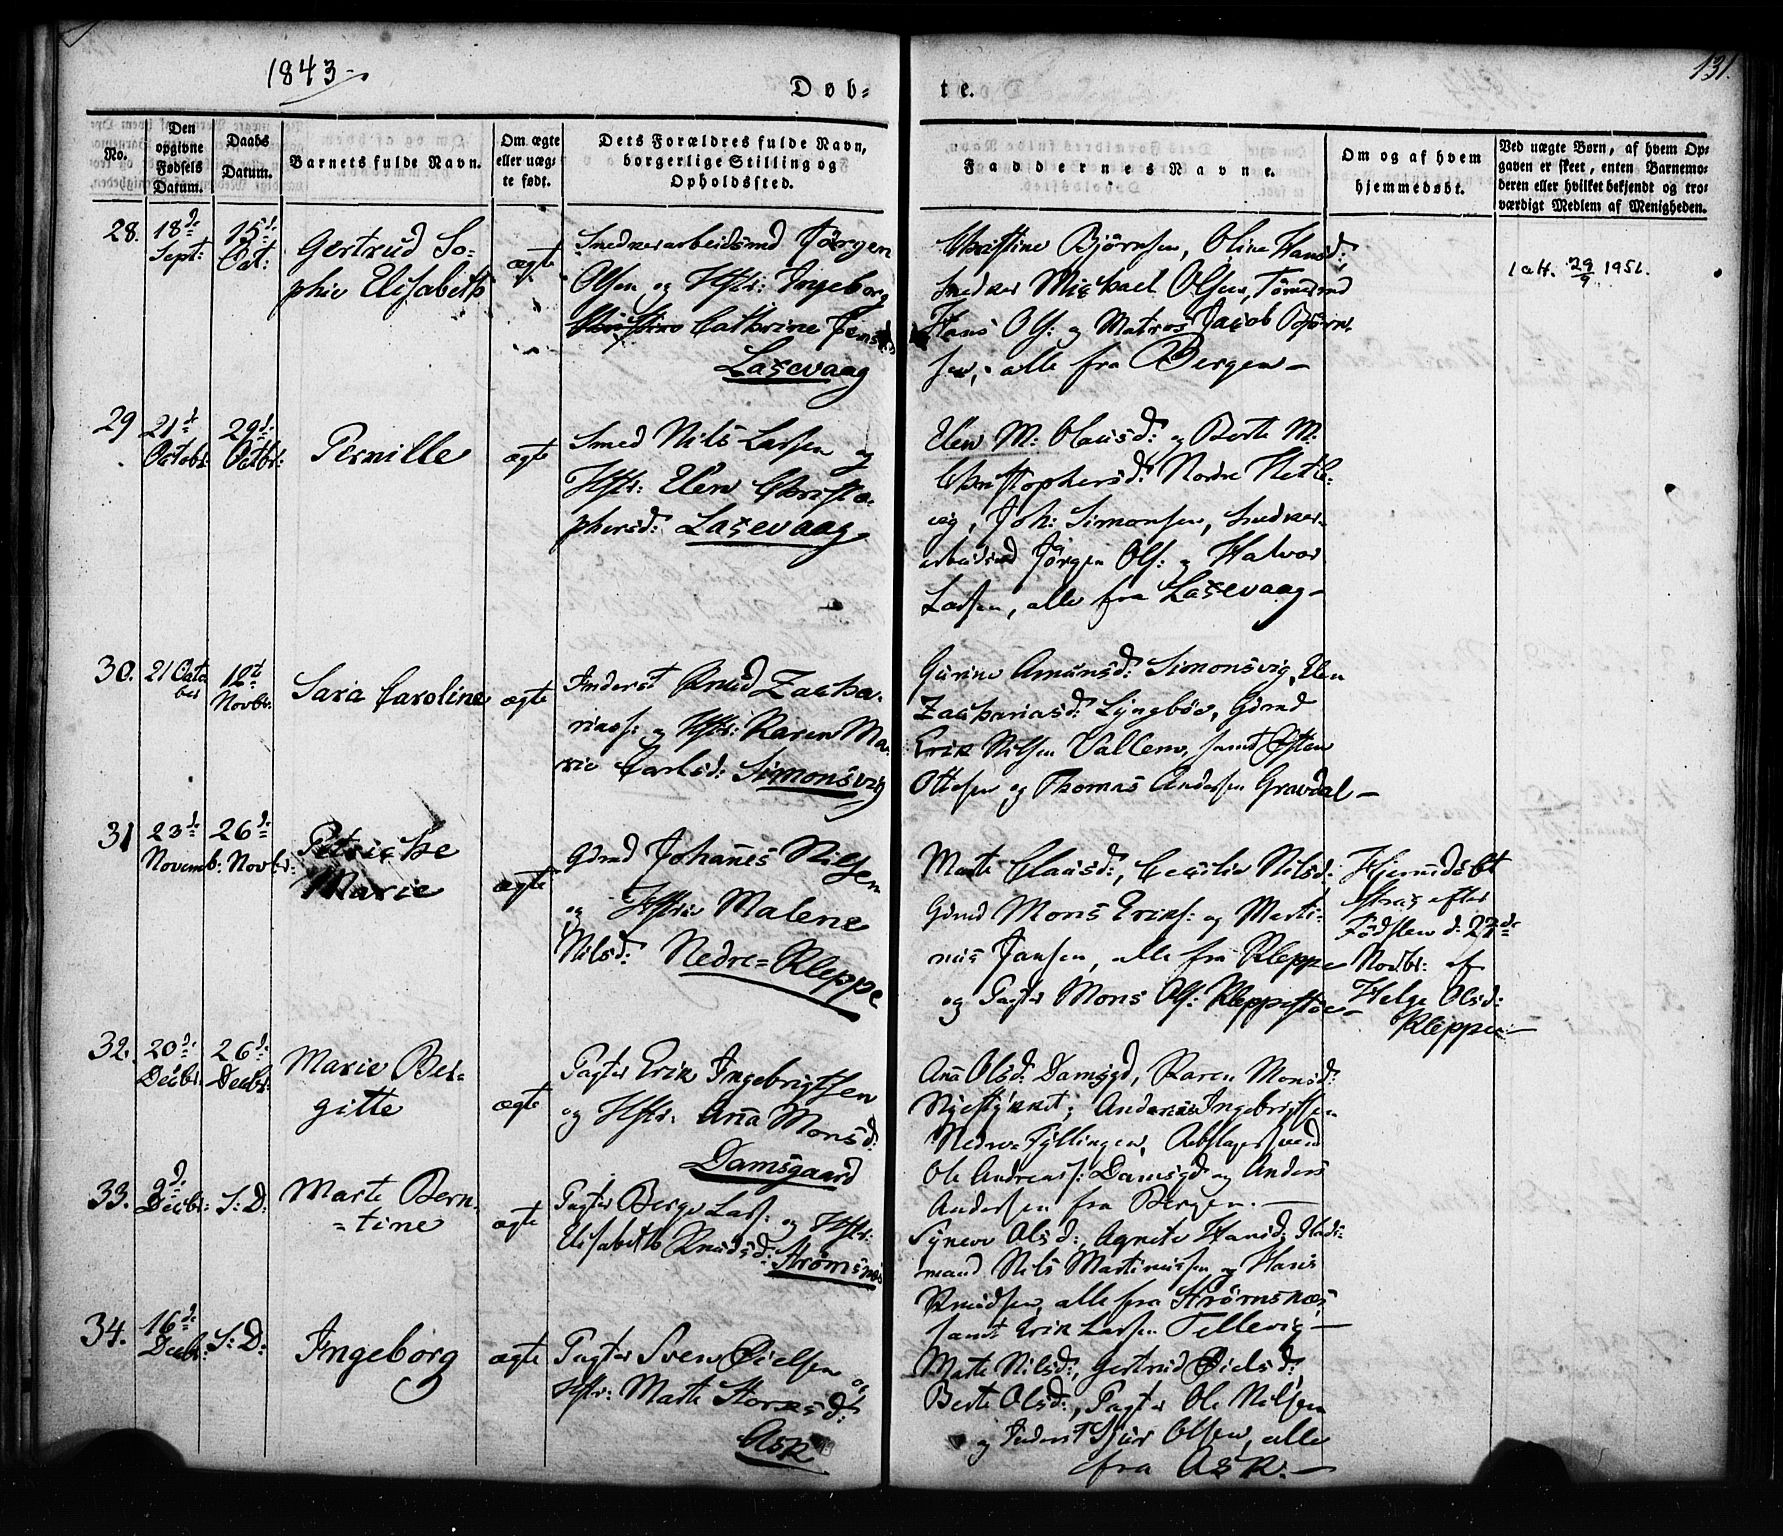 1843
131.
Døb-
te.
No.
Den opgivne Fødsels Datum.
Daabs Datum.
Barnets fulde Navn.
Om ægte eller uæg- te født.
Dets Forældres fulde Navn, borgerlige Stilling og Opholdssted.
Faddernes Navne.
Om og af hvem hjemmedøbt.
Ved uægte Børn, af hvem Op-
gaven er skeet, enten Barnemo-
deren eller hvilket bekjendt og tro-
værdigt Medlem af Menigheden.
28.
18de Sept:
15de Oct:
Gertrud So-
phie Elisabeth
ægte
Snedkerarbeidsmd Jørgen
Olsen og Hstr: Ingeborg
Cathrine Jensd
Laxevaag
Christine Bjørnsen, Oline Hansd:
Snedker Michael Olsen, Tømmermd
Hans Ols: og Matros Jacob Bjørn-
sen, alle fra Bergen
1 att. 29/9 1951.
29
21de Octobr:
29de Octbr:
Pernille
ægte
Smed Nils Larsen og
Hstr: Elen Christo-
phersd: Laxevaag
Elen M: Olausd: og Berte M:
Christophersd: Nordre Hetle-
vig, Joh: Simonsen, Snedker-
arbeidsmd Jørgen Ols: og Halvor
Larsen, alle fra Laxevaag
30.
21 Octo ber
12te Novbr:
Sara Caroline
ægte
Inderst Knud Zacha-
riass: og Hstr: Karen Ma-
rie Carlsd: Simonsvig
Gurine Amunsd: Simonsvig, Elen
Zachariasd: Lyngbøe, Gdmd
Erik Nilsen Vallem, samt Østen
Ottesen og Thomas Andersen Gravdal
31
23de Novemb:
26de Novbr:
Petriche
Marie
ægte
Gdmd Johannes Nilsen
og Hstr: Malene
Nilsd: Nedre-Kleppe
Marte Clausd:, Cecilie Nilsd:
Gdmd Mons Eriks: og Marti-
nus Jansen, alle fra Kleppe
og Pagter Mons Ols: Kleppestøe
Hjemmedøbt
Strax efter
Fødslen d: 23de
Novbr: af
Helge Olsd:
Kleppe
32.
20de Decbr:
26de Decbr:
Marie Ber-
gitte
ægte
Pagter Erik Ingebrigtsen
og Hstr: Anna Monsd:
Damsgaard
Anna Olsd: Damsgd, Karen Monsd:
Nyestykket, Andreas Ingebrigtsen
Nedre Fyllingen, Rebslagersvend
Ole Andreass: Damsgd og Anders
Andersen fra Bergen.
33.
9de Decbr:
S: D:
Marte Bern-
tine
ægte
Pagter Berge Lars: og Hstr:
Elisabeth Knudsd: Strømsnæs
Synneve Olsd:, Agnete Hansd:
mand Nils Martinussen og Hans
Knudsen, alle fra Strømsnæs,
samt Erik Larsen Tellevig
34.
16de Decbr:
S: D:
Ingeborg
ægte
Pagter Sven Øielsen og
Hstr: Marte Storksd:
Ask
Marte Nilsd:, Gertrud Øielsd:,
Berte Olsd:, Pagter Ole Nilsen
og Inderst Sjur Olsen, alle
fra Ask.